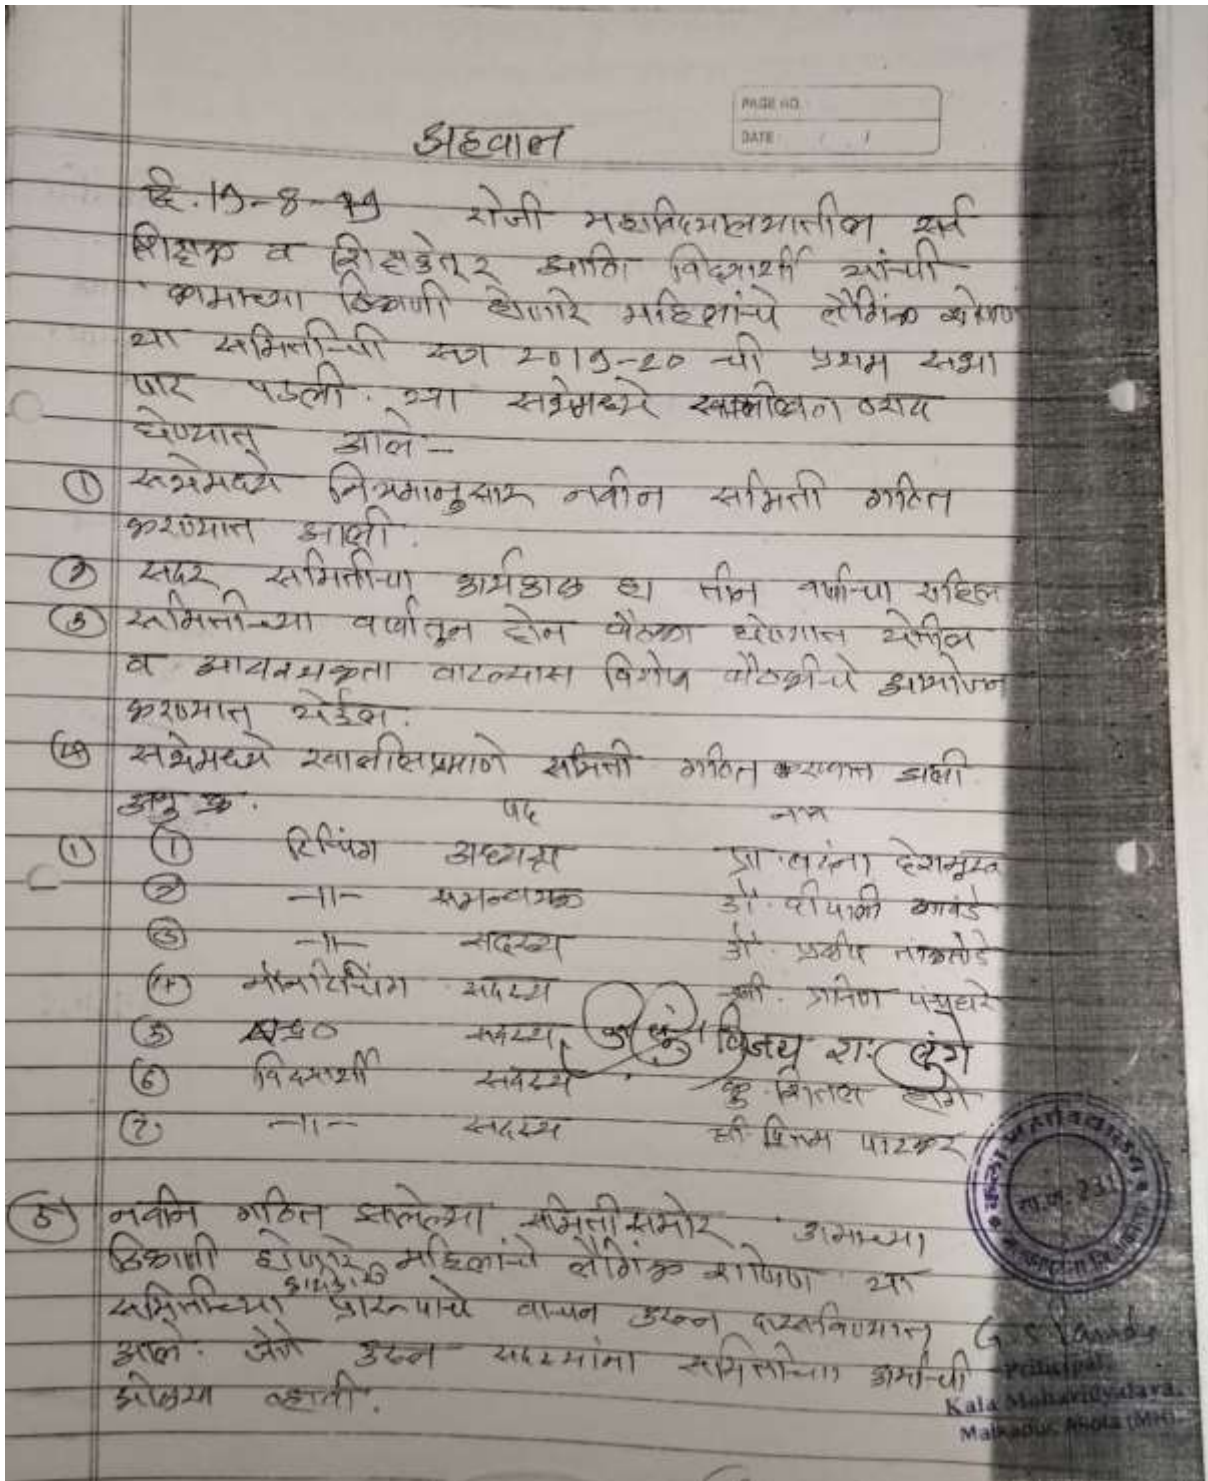 PAGE NO.
DATE / /
अहवाल
दि. १९-८-१९ रोजी महाविद्यालयातील सर्व
शिक्षक व शिक्षकेतूर आणि विद्यार्थी यांची
कामाच्या ठिकाणी होणारे महिलांचे लैगिंक शोषण
या समितीची सत्र २०१९-२० ची प्रथम सभा
पार पडली. त्या सभेमध्ये खालील ठराव
घेण्यात आले -
① सभेमध्ये नियमानुसार नवीन समिती गठित
करण्यात आली.
② सदर समितीचा कार्यकाळ हा तीन वर्षाचा राहिल
③ समितीच्या वर्षातून दोन बैठका घेण्यात येतील
व आवश्यकता वाटल्यास विशेष बैठकीचे आयोजन
करण्यात येईल.
④ सभेमध्ये खालीलप्रमाणे समिती गठित करण्यात आली
अनु क्र. पद नाव
① ① टिचिंग अध्यक्ष प्रा. वंदना देशमूख
② -॥- समन्वयक डॉ. दीपाली
③ -॥- सदस्य डॉ.
④ नॉनटिचिंग सदस्य श्री. प्रविण पंचधरे
⑤ सदस्य विजय रा. लुंगे
⑥ विद्यार्थी सदस्य कु. शितल
⑦ -॥- सदस्य श्री. पारकर
⑤ नवीन गठित झालेल्या समितीसमोर कामाच्या
ठिकाणी होणारे महिलांचे लैगिंक शोषण या
समितीच्या प्रारूपाचे वाचन करून दाखविण्यात
आले. जेणे करून सदस्यांना समितीच्या कार्याची
ओळख व्हावी.
Principal
Kala Mahavidyalaya,
Malkapur, Akola (MH)